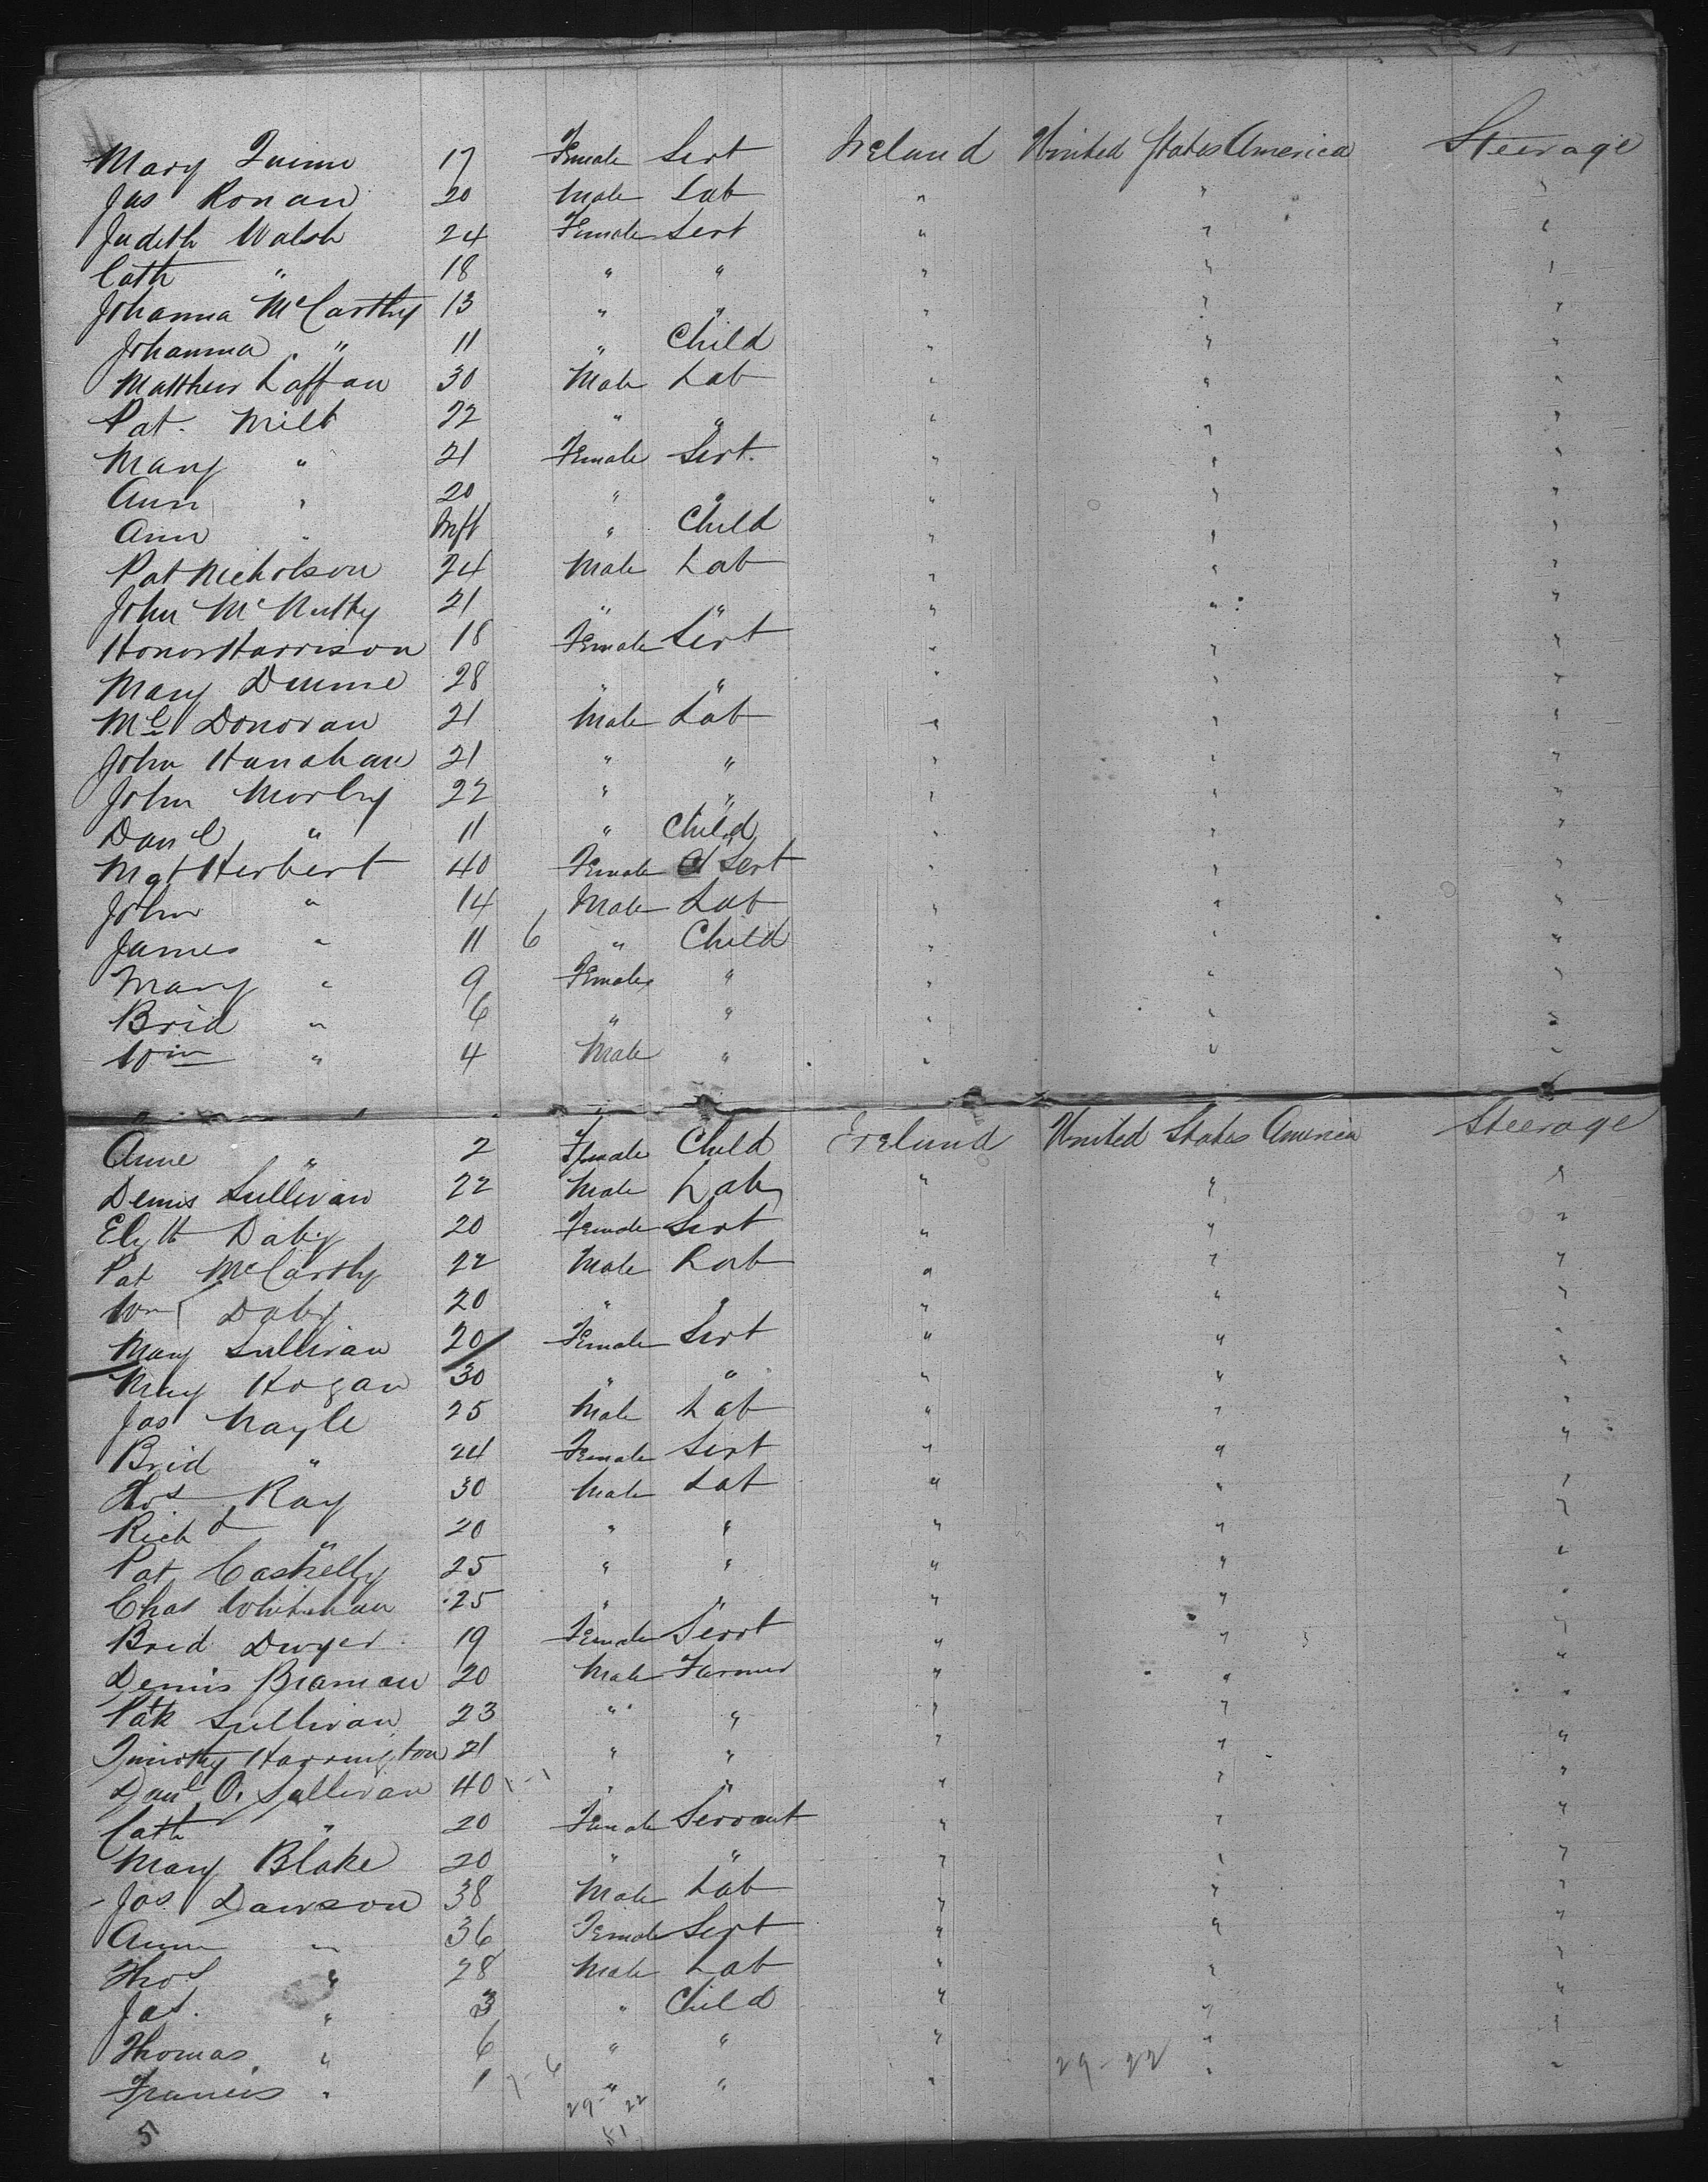 Mary Quinn 17 Female Sert Ireland United States America Steerage
Jas Ronan 20 Male Lab " " "
Judeth Walsh 24 Female Sert " " "
Cath " 18 " " " " "
Johanna McCarthy 13 " " " " "
Johanna " 11 " Child " " "
Matthew Laffan 30 Male Lab " " "
Pat. Milt 22 " " " " "
Mary " 21 Female Sert. " " "
Ann " 20 " " " " "
Ann " Inft " Child " " "
Pat Nicholson 24 Male Lab " " "
John McNulty 21 " " " " "
Honor Harrison 18 Female Sert " " "
Mary Dunne 28 " " " " "
Ml Donovan 21 Male Lab " " "
John Hanahan 21 " " " " "
John Morley 22 " " " " "
Danl " 11 " Child " " "
Mgt Herbert 40 Female Sert " " "
John " 14 Male Lab " " "
James " 11 6 " Child " " "
Mary " 9 Female " " " "
Brid " 6 " " " " "
Wm " 4 Male " " " "
Anne " 2 Female Child Ireland United States America Steerage
Denis Sullivan 22 Male Lab " " "
Elyth Daby 20 Female Sert " " "
Pat McCarthy 22 Male Lab " " "
Wm Daby 20 " " " " "
Mary Sullivan 20 Female Sert " " "
Mary Hogan 30 " " " " "
Jas Nagle 25 Male Lab " " "
Brid " 24 Female Sert " " "
Thos Ray 30 Male Lab " " "
Richd " 20 " " " " "
Pat Caskelly 25 " " " " "
Chas Whitehan 25 " " " " "
Brid Dwyer 19 Female Servt " " "
Denis Braman 20 Male Farmer " " "
Patk Sullivan 23 " " " " "
Timothy Harrington 21 " " " " "
Danl O. Sullivan 40 " " " " "
Cath " 20 Female Servant " " "
Mary Blake 20 " " " " "
Jas Dawson 38 Male Lab " " "
Anne " 36 Female Sert " " "
Thos " 28 Male Lab " " "
Jas. " 3 " Child " " "
Thomas " 6 " " " " "
Francis " 1 7-6 " " " " "
29-22
29-22
51
5